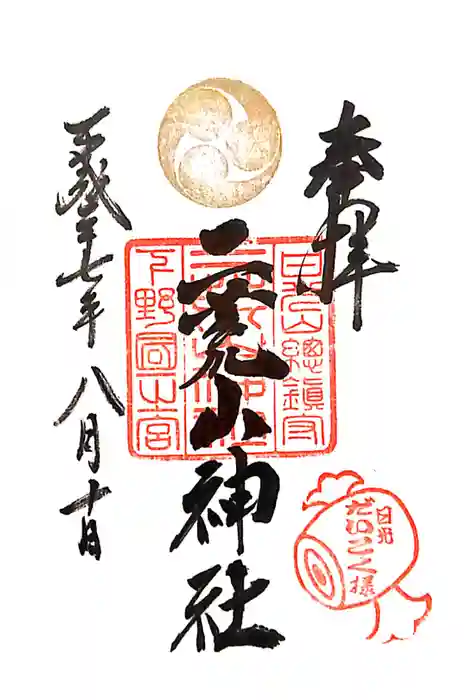 奉拝
二荒山神社
平成二十七年八月十日
日光山總鎮守
二荒山神社
下野國一宮
日光
だいこく様